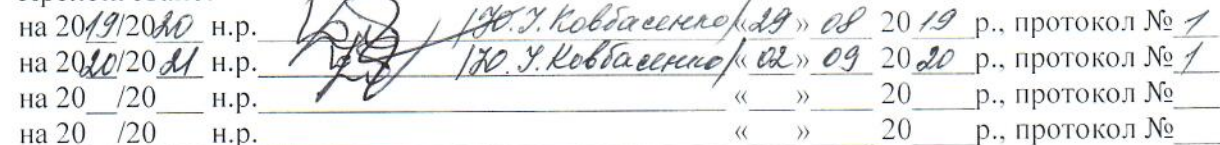 на 2019/2020 н.р. /Ю.І. Ковбасенко/ «29» 08 2019 р., протокол № 1
на 2020/2021 н.р. /Ю.І. Ковбасенко/ «02» 09 2020 р., протокол № 1
на 20__/20__ н.р. «__» ____ 20__ р., протокол №__
на 20__/20__ н.р. «__» ____ 20__ р., протокол №__